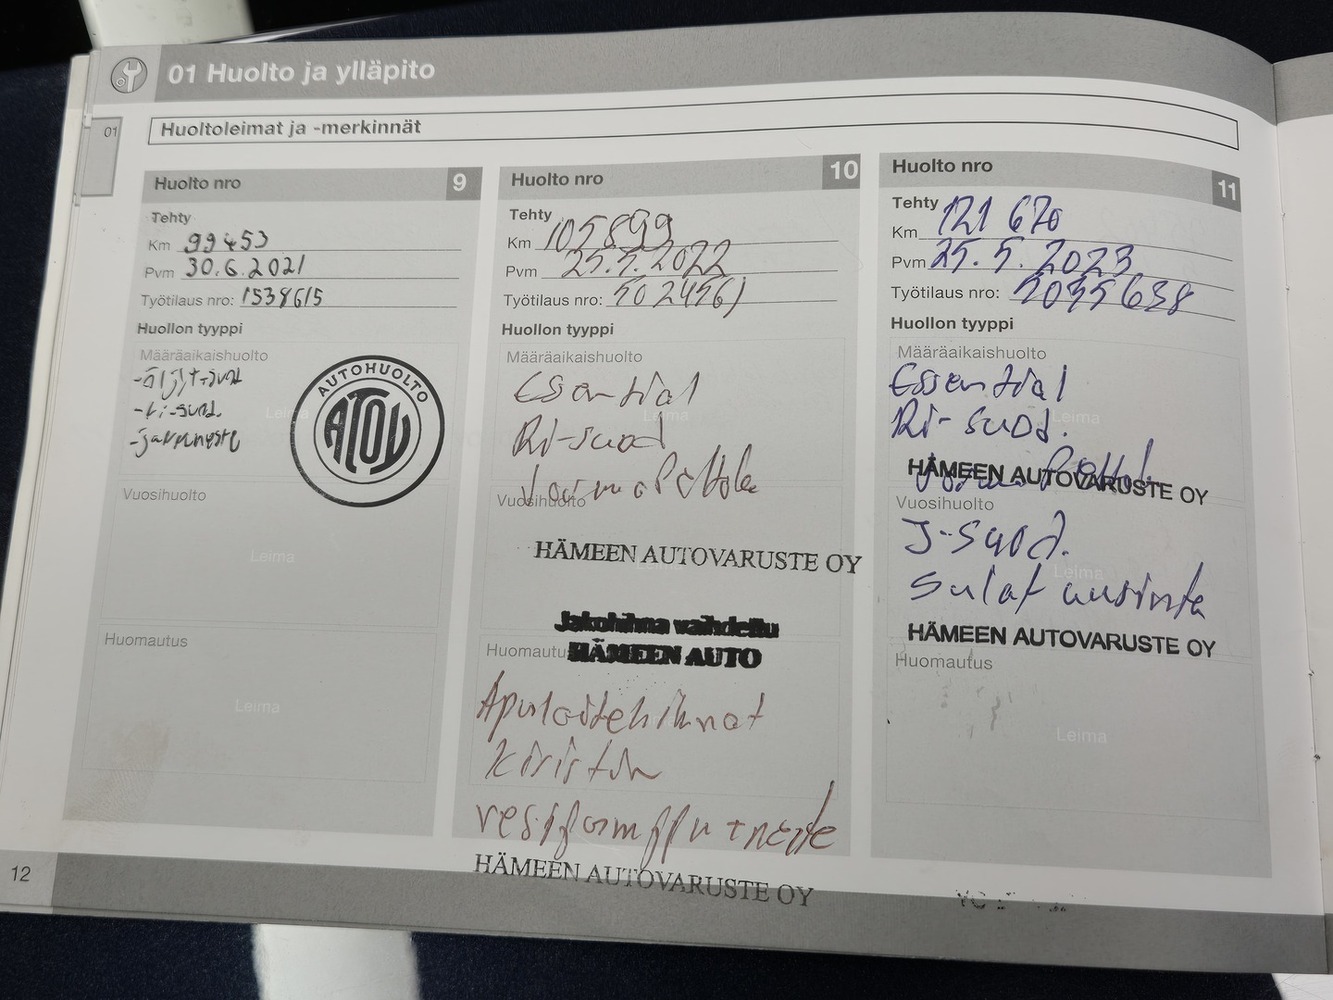 01 Huolto ja ylläpito
01
Huoltoleimat ja -merkinnät
Huolto nro 9
Tehty
Km 99453
Pvm 30.6.2021
Työtilaus nro: 1538615
Huollon tyyppi
Määräaikaishuolto
-öljyt+suod
-ri-suod.
-jarruneste
Leima
AUTOHUOLTO
ATOY
Vuosihuolto
Leima
Huomautus
Leima
Huolto nro 10
Tehty
Km 105899
Pvm 25.5.2022
Työtilaus nro:
Huollon tyyppi
Määräaikaishuolto
Essential
Leima
Ri-suod
Vuosihuolto
HÄMEEN AUTOVARUSTE OY
Jakohihna vaihdettu
Huomautus HÄMEEN AUTO
Apulaitehihnat
kiristin
vesipumppu + neste
HÄMEEN AUTOVARUSTE OY
Huolto nro 11
Tehty
Km 121 670
Pvm 25.5.2023
Työtilaus nro: 5035638
Huollon tyyppi
Määräaikaishuolto
Essential
Leima
Ri-suod.
HÄMEEN AUTOVARUSTE OY
Vuosihuolto
J-suod.
Leima
Sulat uusinta
HÄMEEN AUTOVARUSTE OY
Huomautus
Leima
12